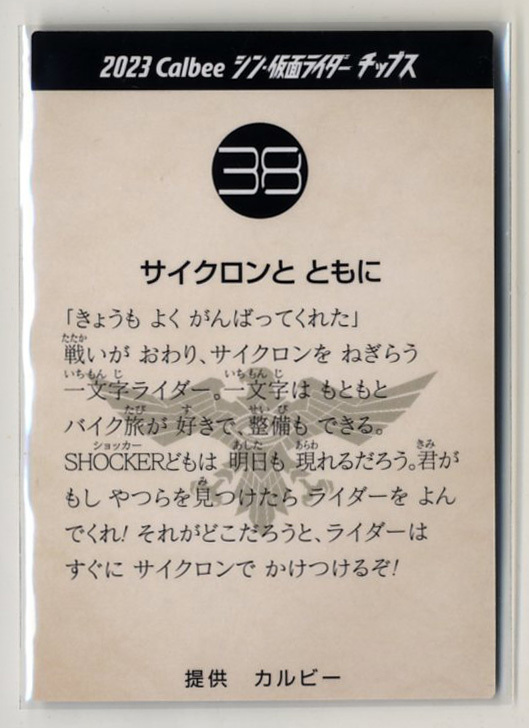 2023 Calbee シン・仮面ライダー チップス
38
サイクロンと ともに
「きょうも よく がんばってくれた」
たたか
戦いが おわり、サイクロンを ねぎらう
いちもんじ いちもんじ
一文字ライダー。一文字は もともと
たび す せいび
バイク旅が 好きで、整備も できる。
ショッカー あした あらわ きみ
SHOCKERどもは 明日も 現れるだろう。君が
み
もし やつらを見つけたら ライダーを よん
でくれ! それがどこだろうと、ライダーは
すぐに サイクロンで かけつけるぞ!
提供 カルビー